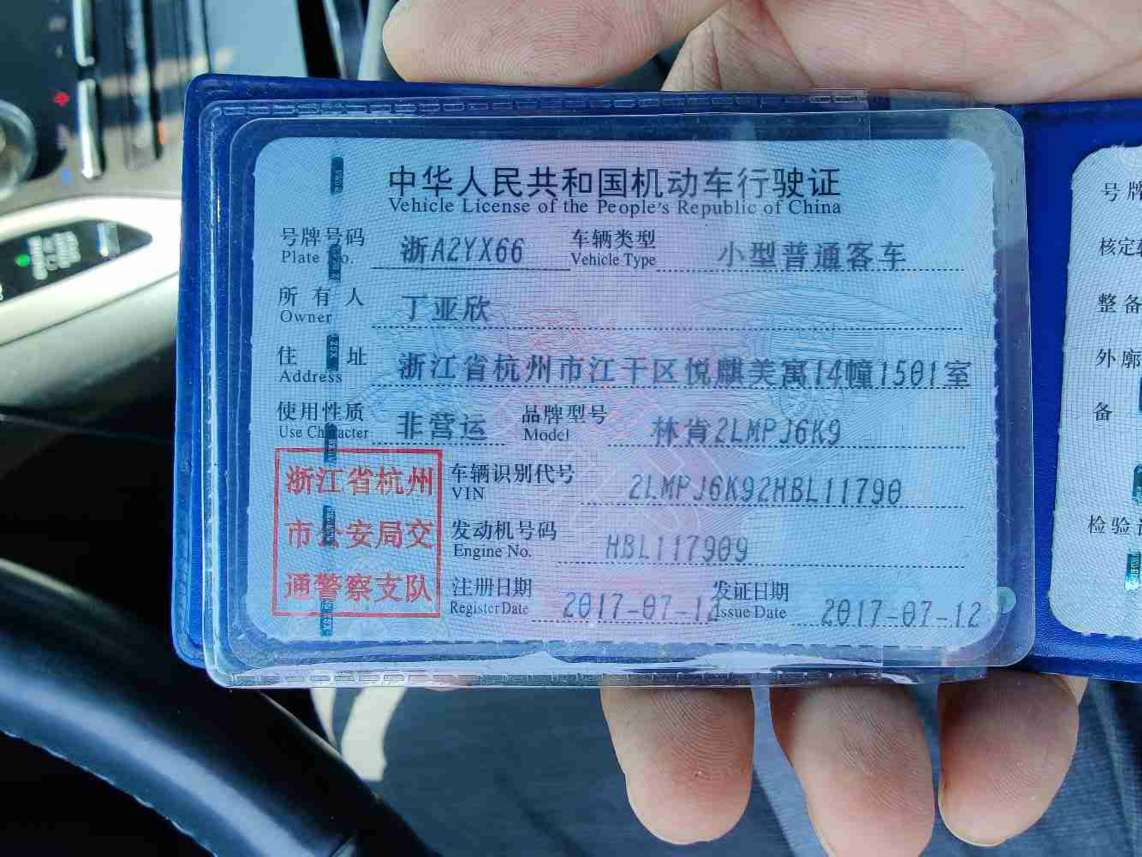 中华人民共和国机动车行驶证
Vehicle License of the People's Republic of China
号牌号码 浙A2YX66 车辆类型 小型普通客车
Plate No. Vehicle Type
所有人 丁亚欣
Owner
住址 浙江省杭州市江干区悦麒美寓14幢1501室
Address
使用性质 非营运 品牌型号 林肯2LMPJ6K9
Use Character Model
浙江省杭州
市公安局交
通警察支队
车辆识别代号 2LMPJ6K92HBL11790
VIN
发动机号码 HBL117909
Engine No.
注册日期 2017-07-12 发证日期 2017-07-12
Register Date Issue Date
号牌
核定
整备
外廓
备
检验